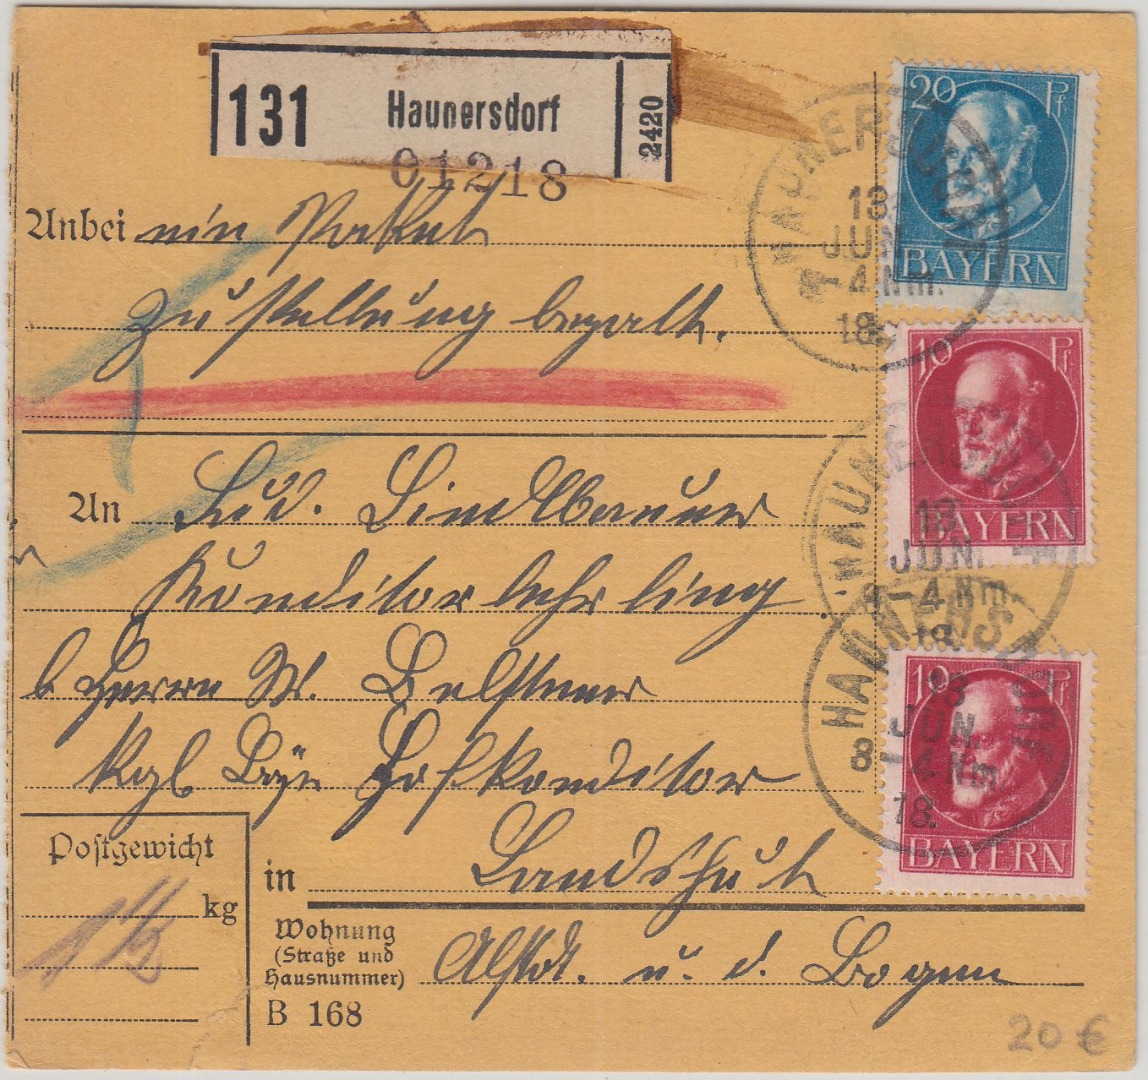 131 Haunersdorf 2420
01218
Anbei ein Paket
Zustellung bezalt.
An Lud. Lindlbauer
Konditorlehrling
b Herrn W. Belstner
Kgl Bay. Hofkonditor
in Landshut
Altst. u. d. Bogen
Postgewicht
1½ kg
Wohnung
(Straße und
Hausnummer)
B 168
20 Pf
BAYERN
10 Pf
BAYERN
10 Pf
BAYERN
HAUNERSDORF
13
JUN.
-4 Nm.
18.
HAUNERSDORF
13
JUN.
-4 Nm.
18.
HAUNERSDORF
13
JUN.
8-4 Nm.
18.
20 €